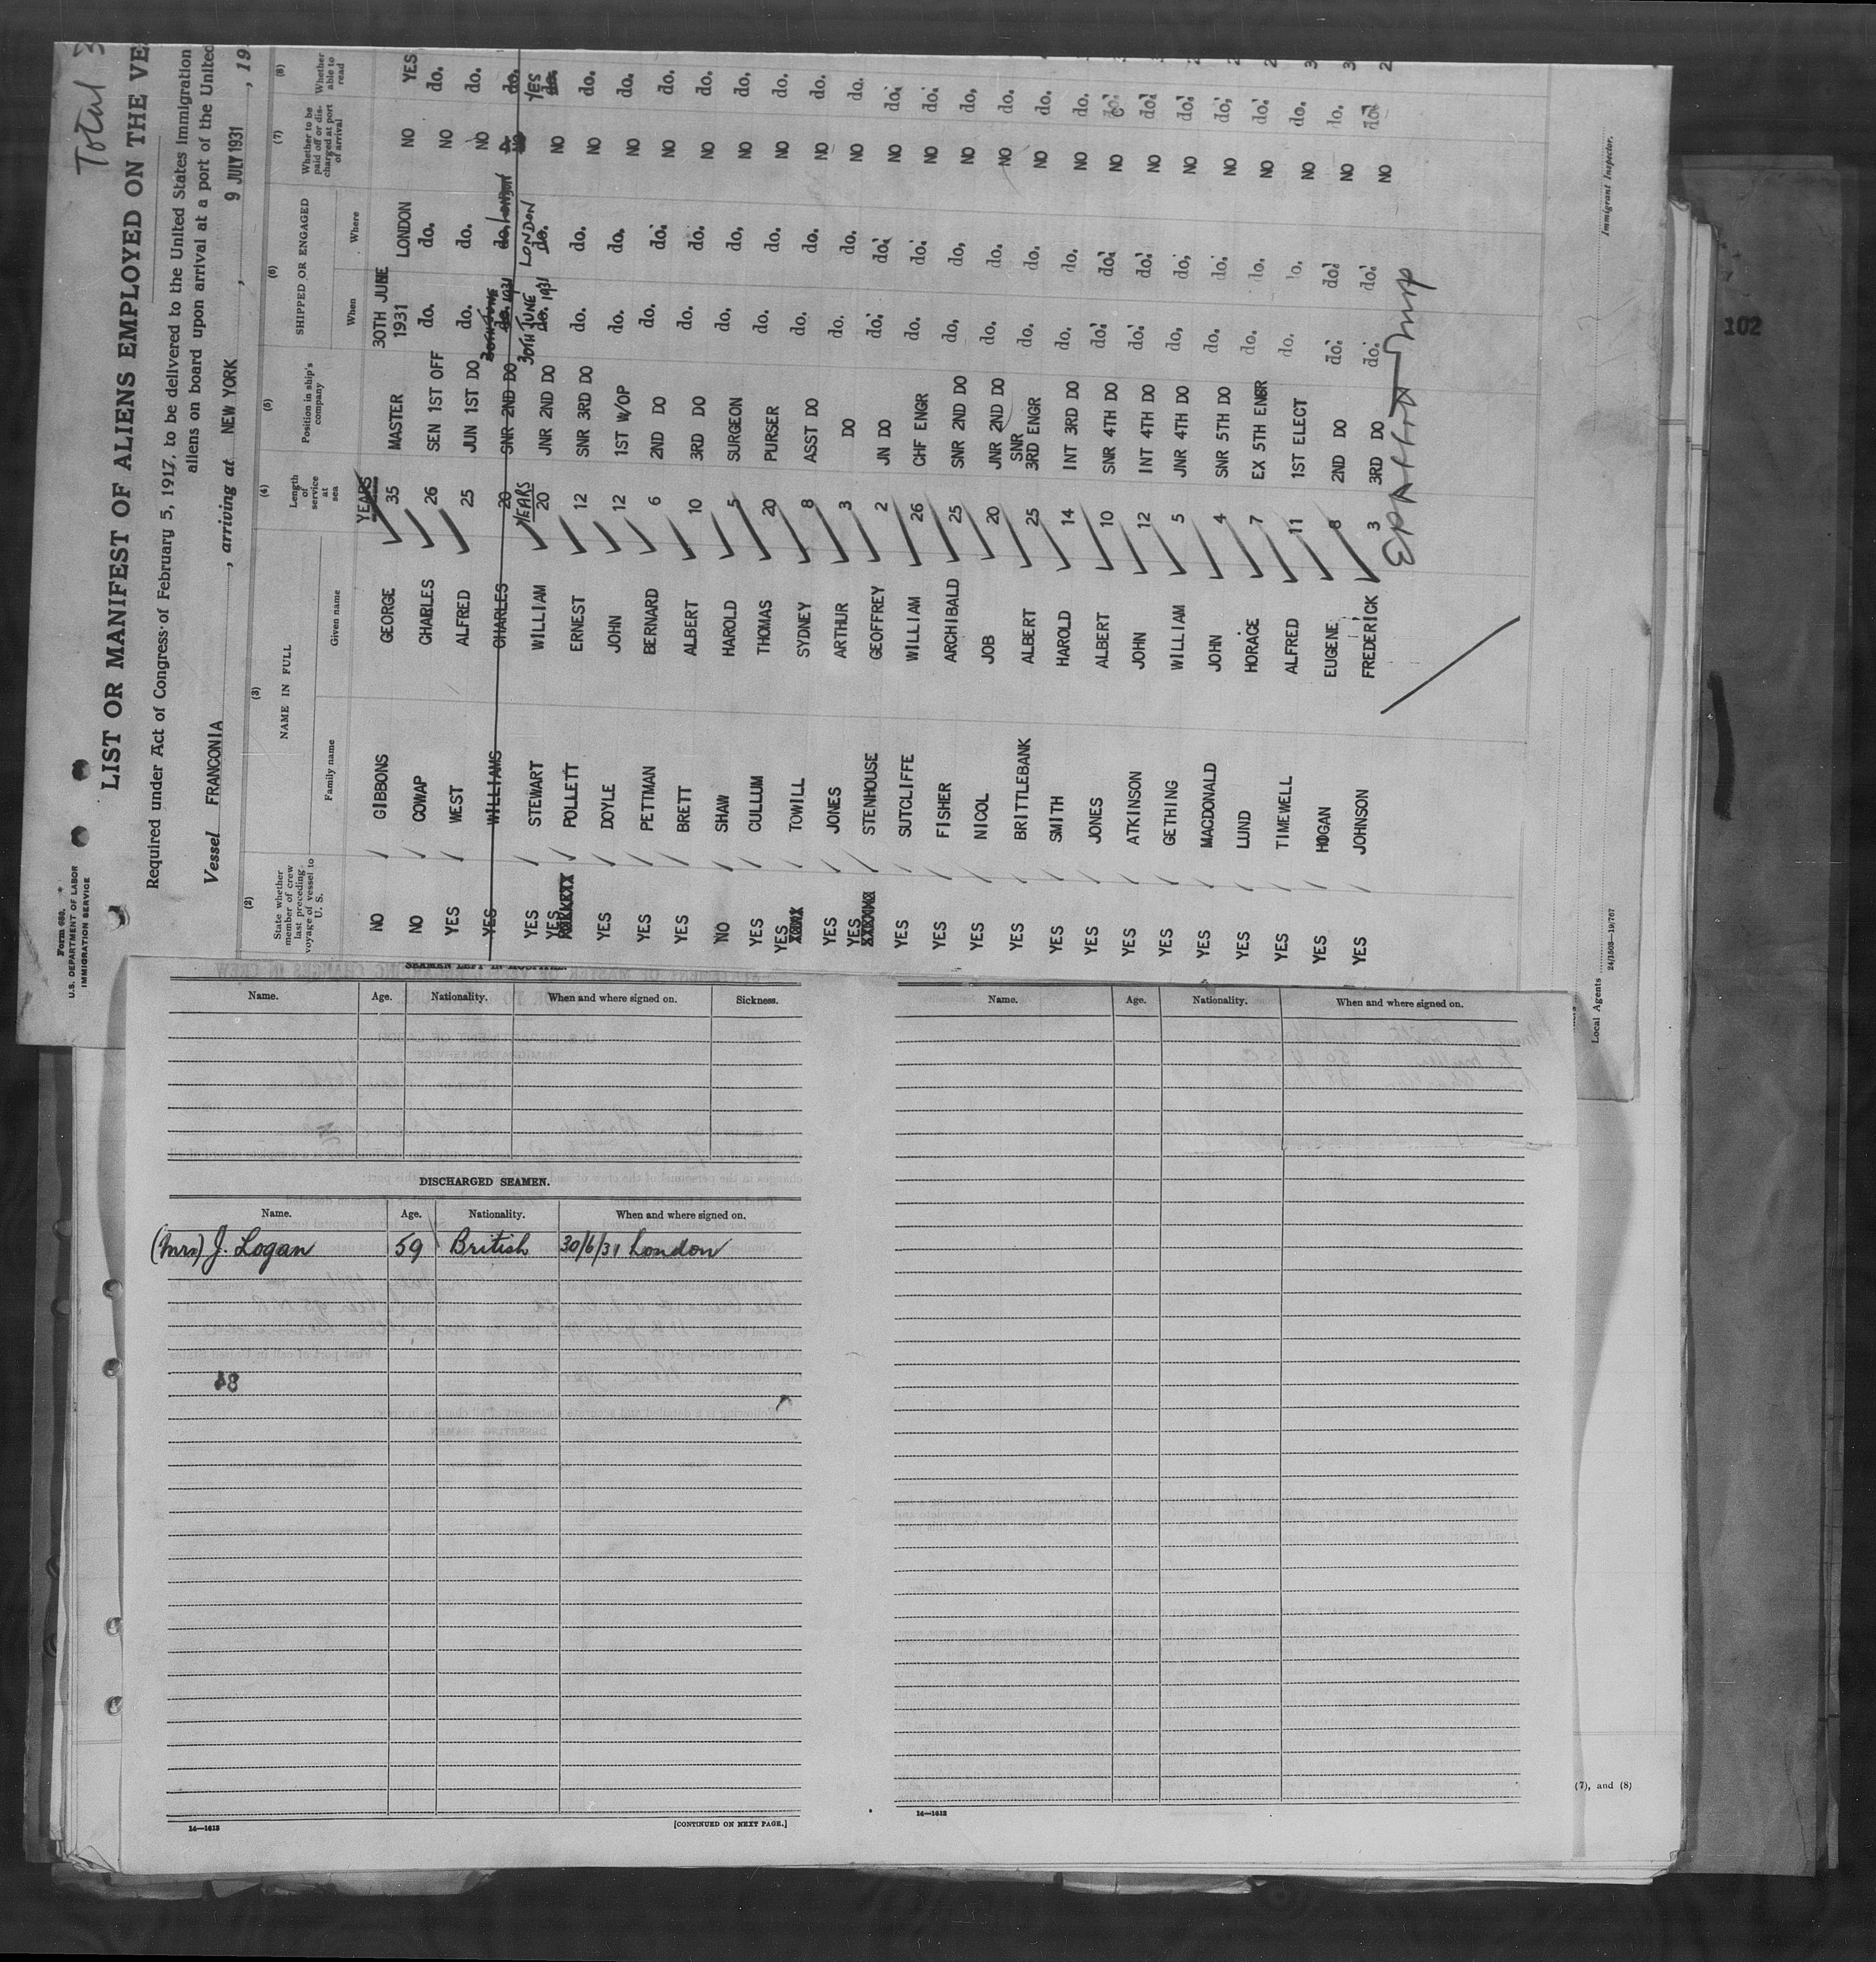 Total
Form 689.
U.S. DEPARTMENT OF LABOR
IMMIGRATION SERVICE
LIST OR MANIFEST OF ALIENS EMPLOYED ON THE VE
Required under Act of Congress of February 5, 1917, to be delivered to the United States Immigration
aliens on board upon arrival at a port of the United
Vessel FRANCONIA, arriving at NEW YORK, 9 JULY 1931, 19
(2) (3) (4) (5) (6) (7) (8)
State whether member of crew last preceding voyage of vessel to U. S. NAME IN FULL Length of service at sea Position in ship's company SHIPPED OR ENGAGED Whether to be paid off or discharged at port of arrival Whether able to read
Family name Given name When Where
YEARS 30TH JUNE
NO GIBBONS GEORGE 35 MASTER 1931 LONDON NO YES
NO COWAP CHARLES 26 SEN 1ST OFF do. do. NO do.
YES WEST ALFRED 25 JUN 1ST DO do. do. NO do.
YES WILLIAMS CHARLES 20 SNR 2ND DO do. 1931 do. LONDON NO do.
YEARS 30TH JUNE LONDON YES
YES STEWART WILLIAM 20 JNR 2ND DO do. 1931 do. NO do.
YES POLLETT ERNEST 12 SNR 3RD DO do. do. NO do.
YES DOYLE JOHN 12 1ST W/OP do. do. NO do.
YES PETTMAN BERNARD 6 2ND DO do. do. NO do.
YES BRETT ALBERT 10 3RD DO do. do. NO do.
NO SHAW HAROLD 5 SURGEON do. do. NO do.
YES CULLUM THOMAS 20 PURSER do. do. NO do.
YES TOWILL SYDNEY 8 ASST DO do. do. NO do.
YES JONES ARTHUR 3 DO do. do. NO do.
YES STENHOUSE GEOFFREY 2 JN DO do. do. NO do.
YES SUTCLIFFE WILLIAM 26 CHF ENGR do. do. NO do.
YES FISHER ARCHIBALD 25 SNR 2ND DO do. do. NO do.
YES NICOL JOB 20 JNR 2ND DO do. do. NO do.
YES BRITTLEBANK ALBERT 25 SNR 3RD ENGR do. do. NO do.
YES SMITH HAROLD 14 INT 3RD DO do. do. NO do.
YES JONES ALBERT 10 SNR 4TH DO do. do. NO do.
YES ATKINSON JOHN 12 INT 4TH DO do. do. NO do.
YES GETHING WILLIAM 5 JNR 4TH DO do. do. NO do.
YES MACDONALD JOHN 4 SNR 5TH DO do. do. NO do.
YES LUND HORACE 7 EX 5TH ENGR do. do. NO do.
YES TIMEWELL ALFRED 11 1ST ELECT do. do. NO do.
YES HOGAN EUGENE 8 2ND DO do. do. NO do.
YES JOHNSON FREDERICK 3 3RD DO do. do. NO do.
Local Agents
24/1503-19/767
Immigrant Inspector.
102
SEAMEN LEFT IN HOSPITAL.
Name. Age. Nationality. When and where signed on. Sickness.
DISCHARGED SEAMEN.
Name. Age. Nationality. When and where signed on.
(Mrs) J. Logan 59 British 30/6/31 London
14—1613
[CONTINUED ON NEXT PAGE.]
Name. Age. Nationality. When and where signed on.
14—1613
(7), and (8)